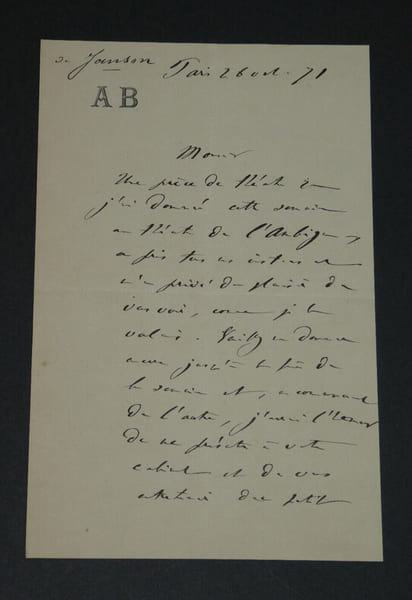 de Janson Paris 26 oct. 71
AB
Monsieur
Une pièce de théâtre que
j'ai donnée cette semaine
au théâtre de l'Ambigu
a pris tous mes instants et
m'a privé du plaisir de
vous voir, comme je le
voulais. Veuillez me donner
encore jusqu'à la fin de
la semaine et, au commencement
de l'autre, j'aurai l'honneur
de me présenter à votre
cabinet et de vous
des petit